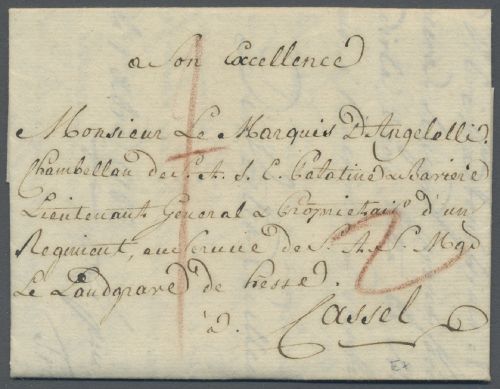 a Son Excellence
Monsieur Le Marquis D'Angelelli.
Chambellan de S. A. S. E. Palatine de Baviere
Lieutenant General & Proprietair d'un
Regiment, au Service de S. A. S. Mgr
Le Landgrave de Hesse.
à. Cassel
2
Ex